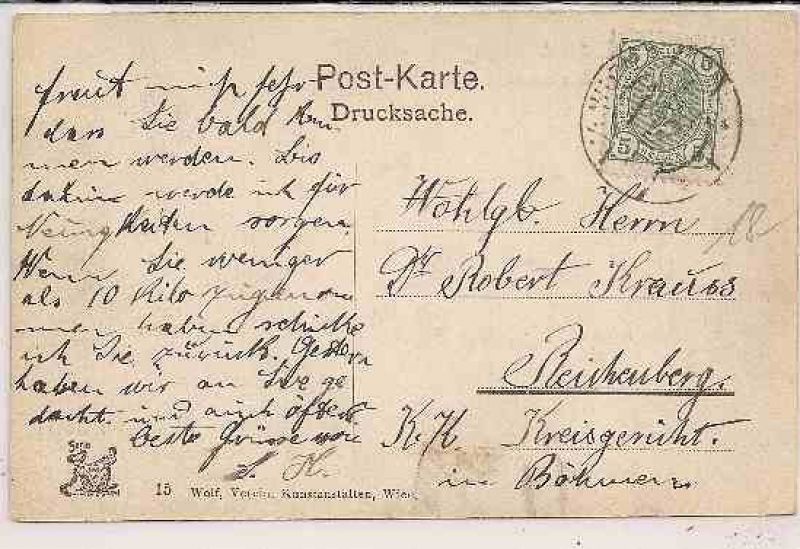 Post-Karte.
Drucksache.
freut mich sehr
dass Sie bald kom
men werden. Bis
dahin werde ich für
Neuigkeiten sorgen.
Wenn Sie weniger
als 10 Kilo zugenom
men haben schicke
ich Sie zurück. Gestern
haben wir an Sie ge
dacht. und auch öfters.
beste Grüsse von
Wohlgb. Herrn
Dr Robert Krauss
Reichenberg.
K. K. Kreisgericht.
in Böhmen
18
Serie
15 Wolf, Verein. Kunstanstalten, Wien.